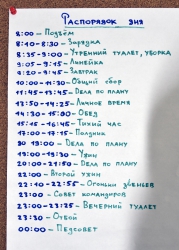 Распорядок дня
8:00 – Подъём
8:10-8:30 – Зарядка
8:35-9:00 – Утренний туалет, уборка
9:05-9:15 – Линейка
9:20-9:45 – Завтрак
10:00-11:30 – Общий сбор
11:45-13:45 – Дела по плану
13:50-14:25 – Личное время
14:30-15:00 – Обед
15:15-16:45 – Тихий час
17:00-17:15 – Полдник
до 19:00 – Дела по плану
19:00-19:30 – Ужин
20:00-21:50 – Дела по плану
22:00 – Второй ужин
22:10-22:55 – Огоньки
23:00 – Совет командиров
23:00-23:25 – Вечерний туалет
23:30 – Отбой
00:00 – Педсовет